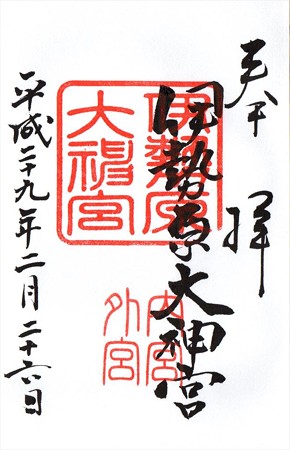 奉拝
伊勢原大神宮
伊勢原
大神宮
内宮
外宮
平成二十九年二月二十六日